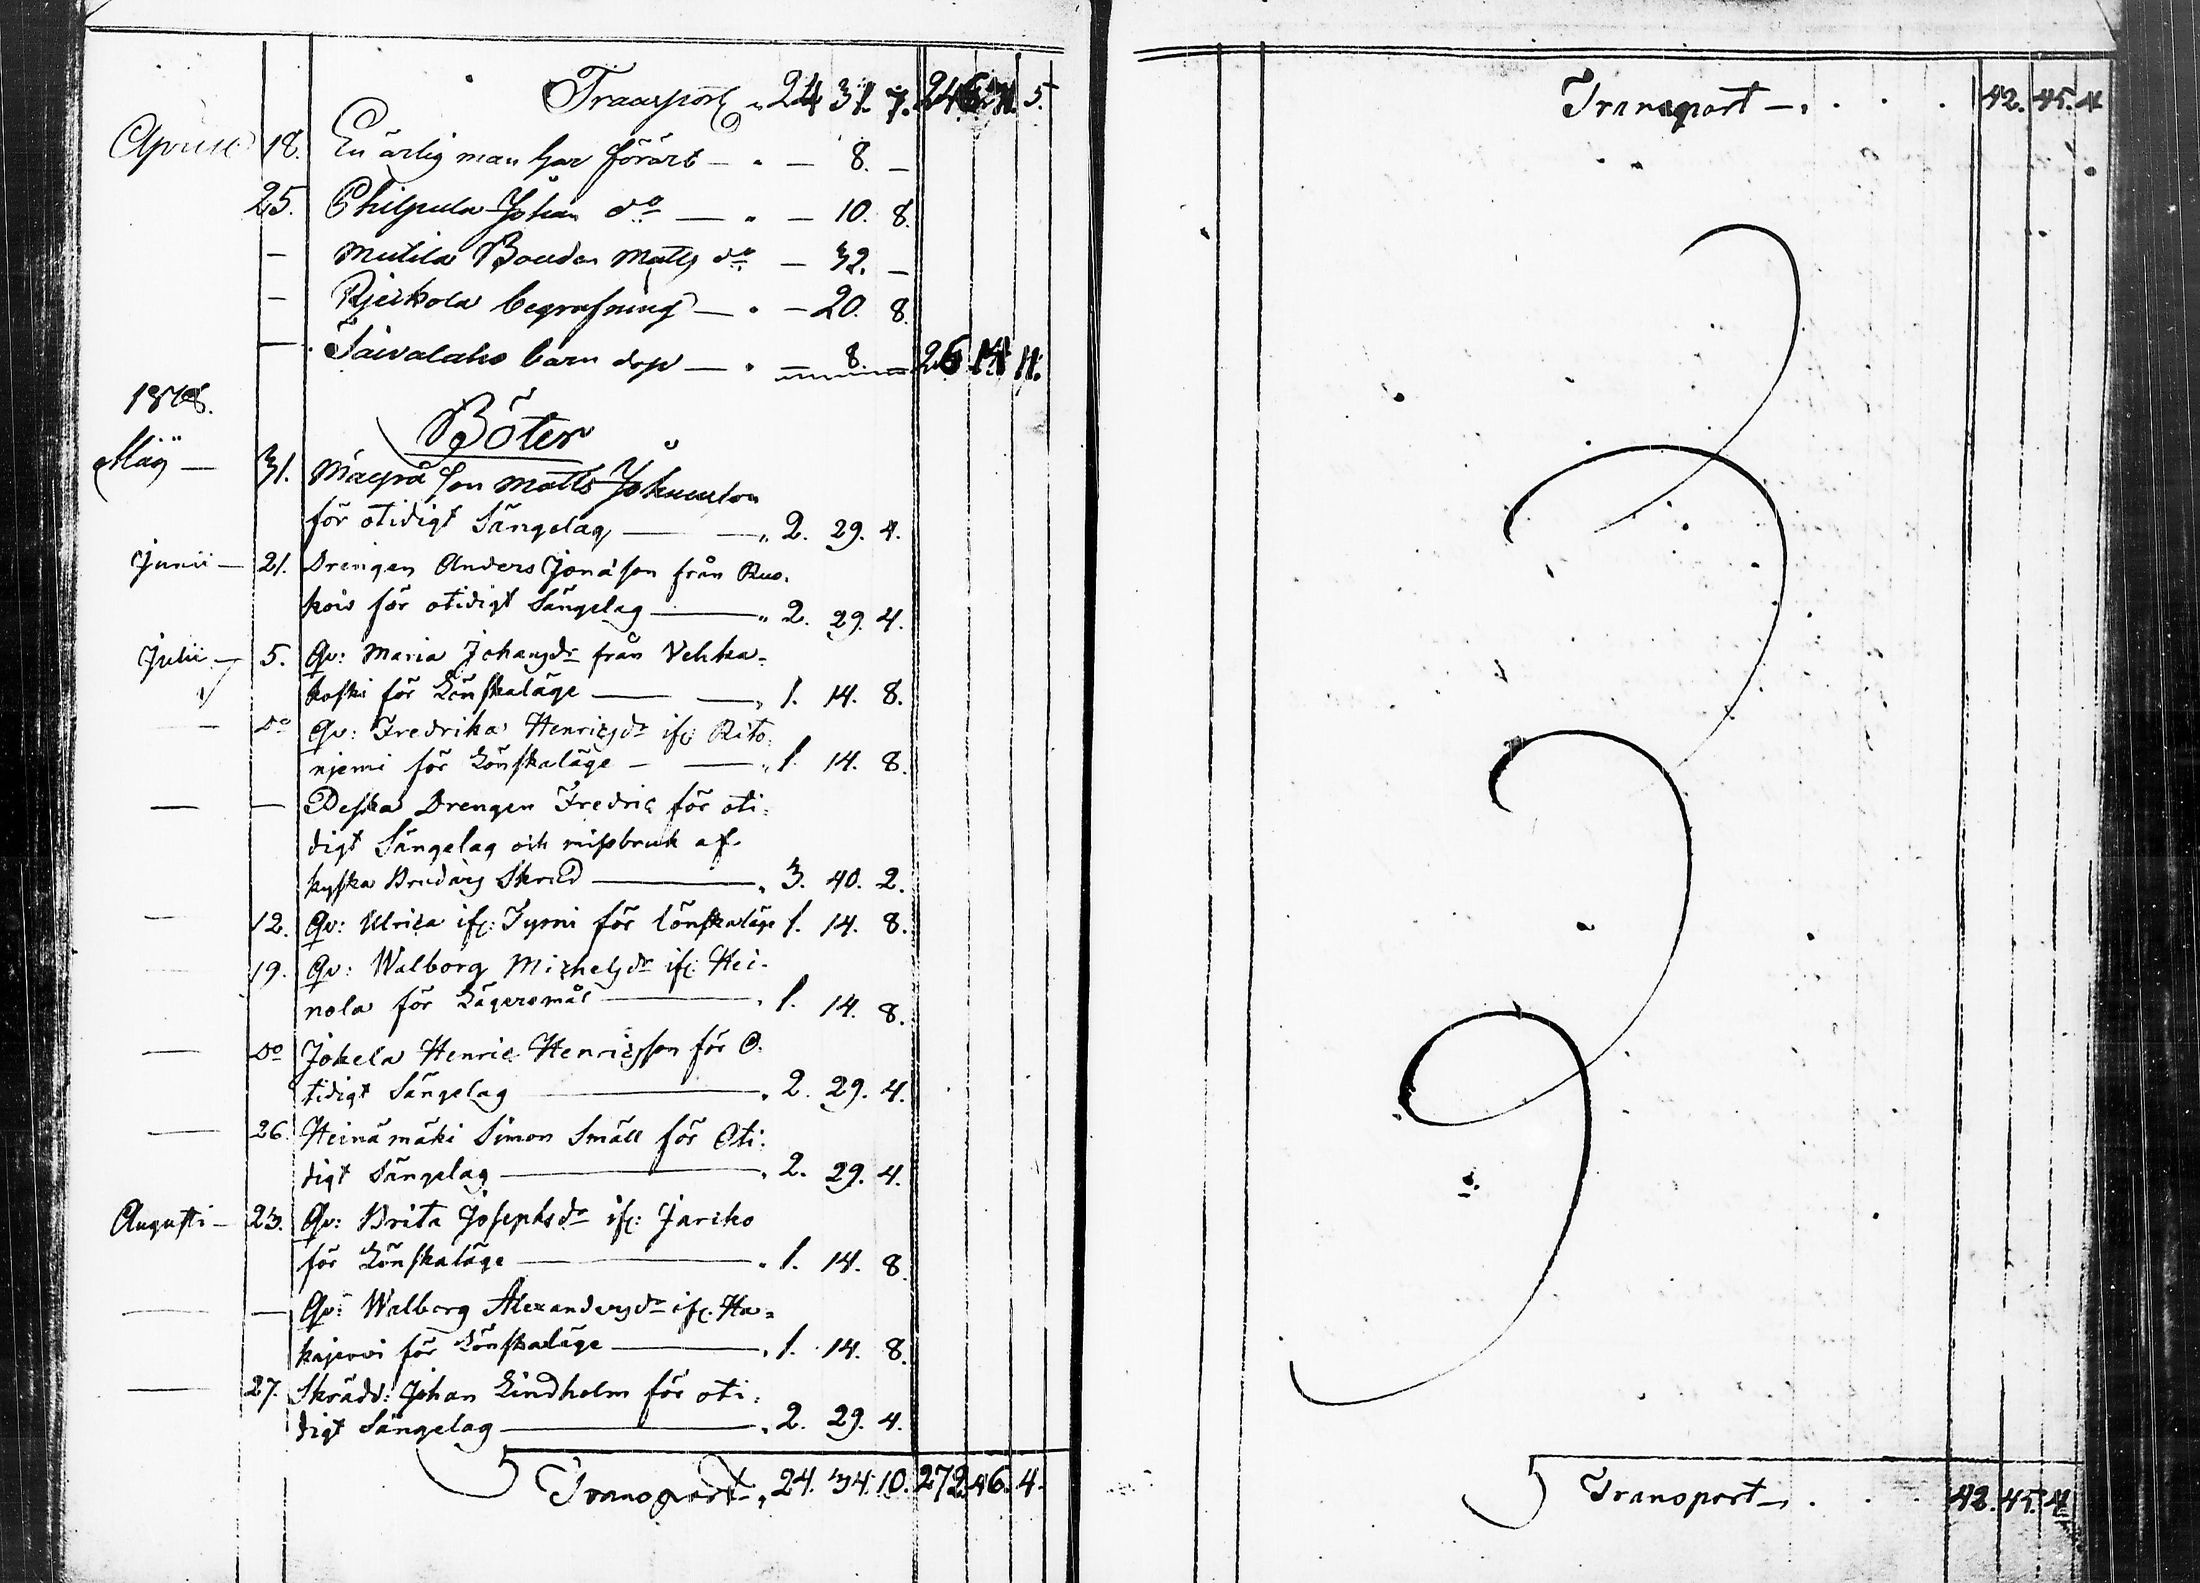 Transport „ 24 31. 7. 246. 11. 5.
18. En ärlig man har förärt — „ — 8. —
25. Johan do — „ — 10. 8.
— Bonden Matts do — 32. —
— begrafning — „ — 20. 8.
— Taivalaho barn dop — „ 8. — 26 14 11.
1808.
Böter
Maij — 31. son Matts Johansson
för otidigt Sängelag — — „ 2. 29. 4.
Junii — 21. Drengen Anders Jonasson från Ruo-
kois för otidigt Sängelag — „ 2. 29. 4.
Julii — 5. Qv: Maria Johansdr från Vehka-
koski för Lönskaläge — — „ 1. 14. 8.
— Do Qv: Fredrika Henricsdr ifr: Rito-
njemi för Lönskaläge — — „ 1. 14. 8.
— — Drengen Fredric för oti-
digt Sängelag och missbruk af
kyska Brudars Skrud — „ 3. 40. 2.
— 12. Qv: Ulrica ifr: Tyrni för lönskaläge 1. 14. 8.
19. Qv: Walborg Michelsdr ifr: Hei-
nola för Lägersmål — „ 1. 14. 8.
— Do Jokela Henric Henricsson för O-
tidigt Sängelag — „ 2. 29. 4.
— 26. Heinämäki Simon Småll för Oti-
digt Sängelag — „ 2. 29. 4.
Augusti — 23. Qv: Brita Josephsdr ifr: Jarcko
för Lönskaläge — „ 1. 14. 8.
— — Qv: Walborg Alexandersdr ifr: Ha-
kajerwi för Lönskaläge — „ 1. 14. 8.
— 27. Skrädd: Johan Lindholm för oti-
digt Sängelag — „ 2. 29. 4.
Transport „ 24. 34. 10. 272. 46. 4.
Transport — „ . . . 42. 45. 4
Transport — „ . . . 42. 45. 4